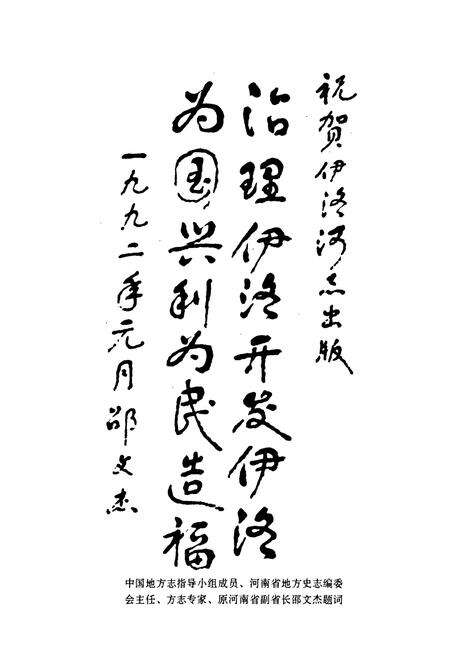 祝贺伊洛河志出版
治理伊洛开发伊洛
为国兴利为民造福
一九九二年元月邵文杰
中国地方志指导小组成员、河南省地方史志编委
会主任、方志专家、原河南省副省长邵文杰题词